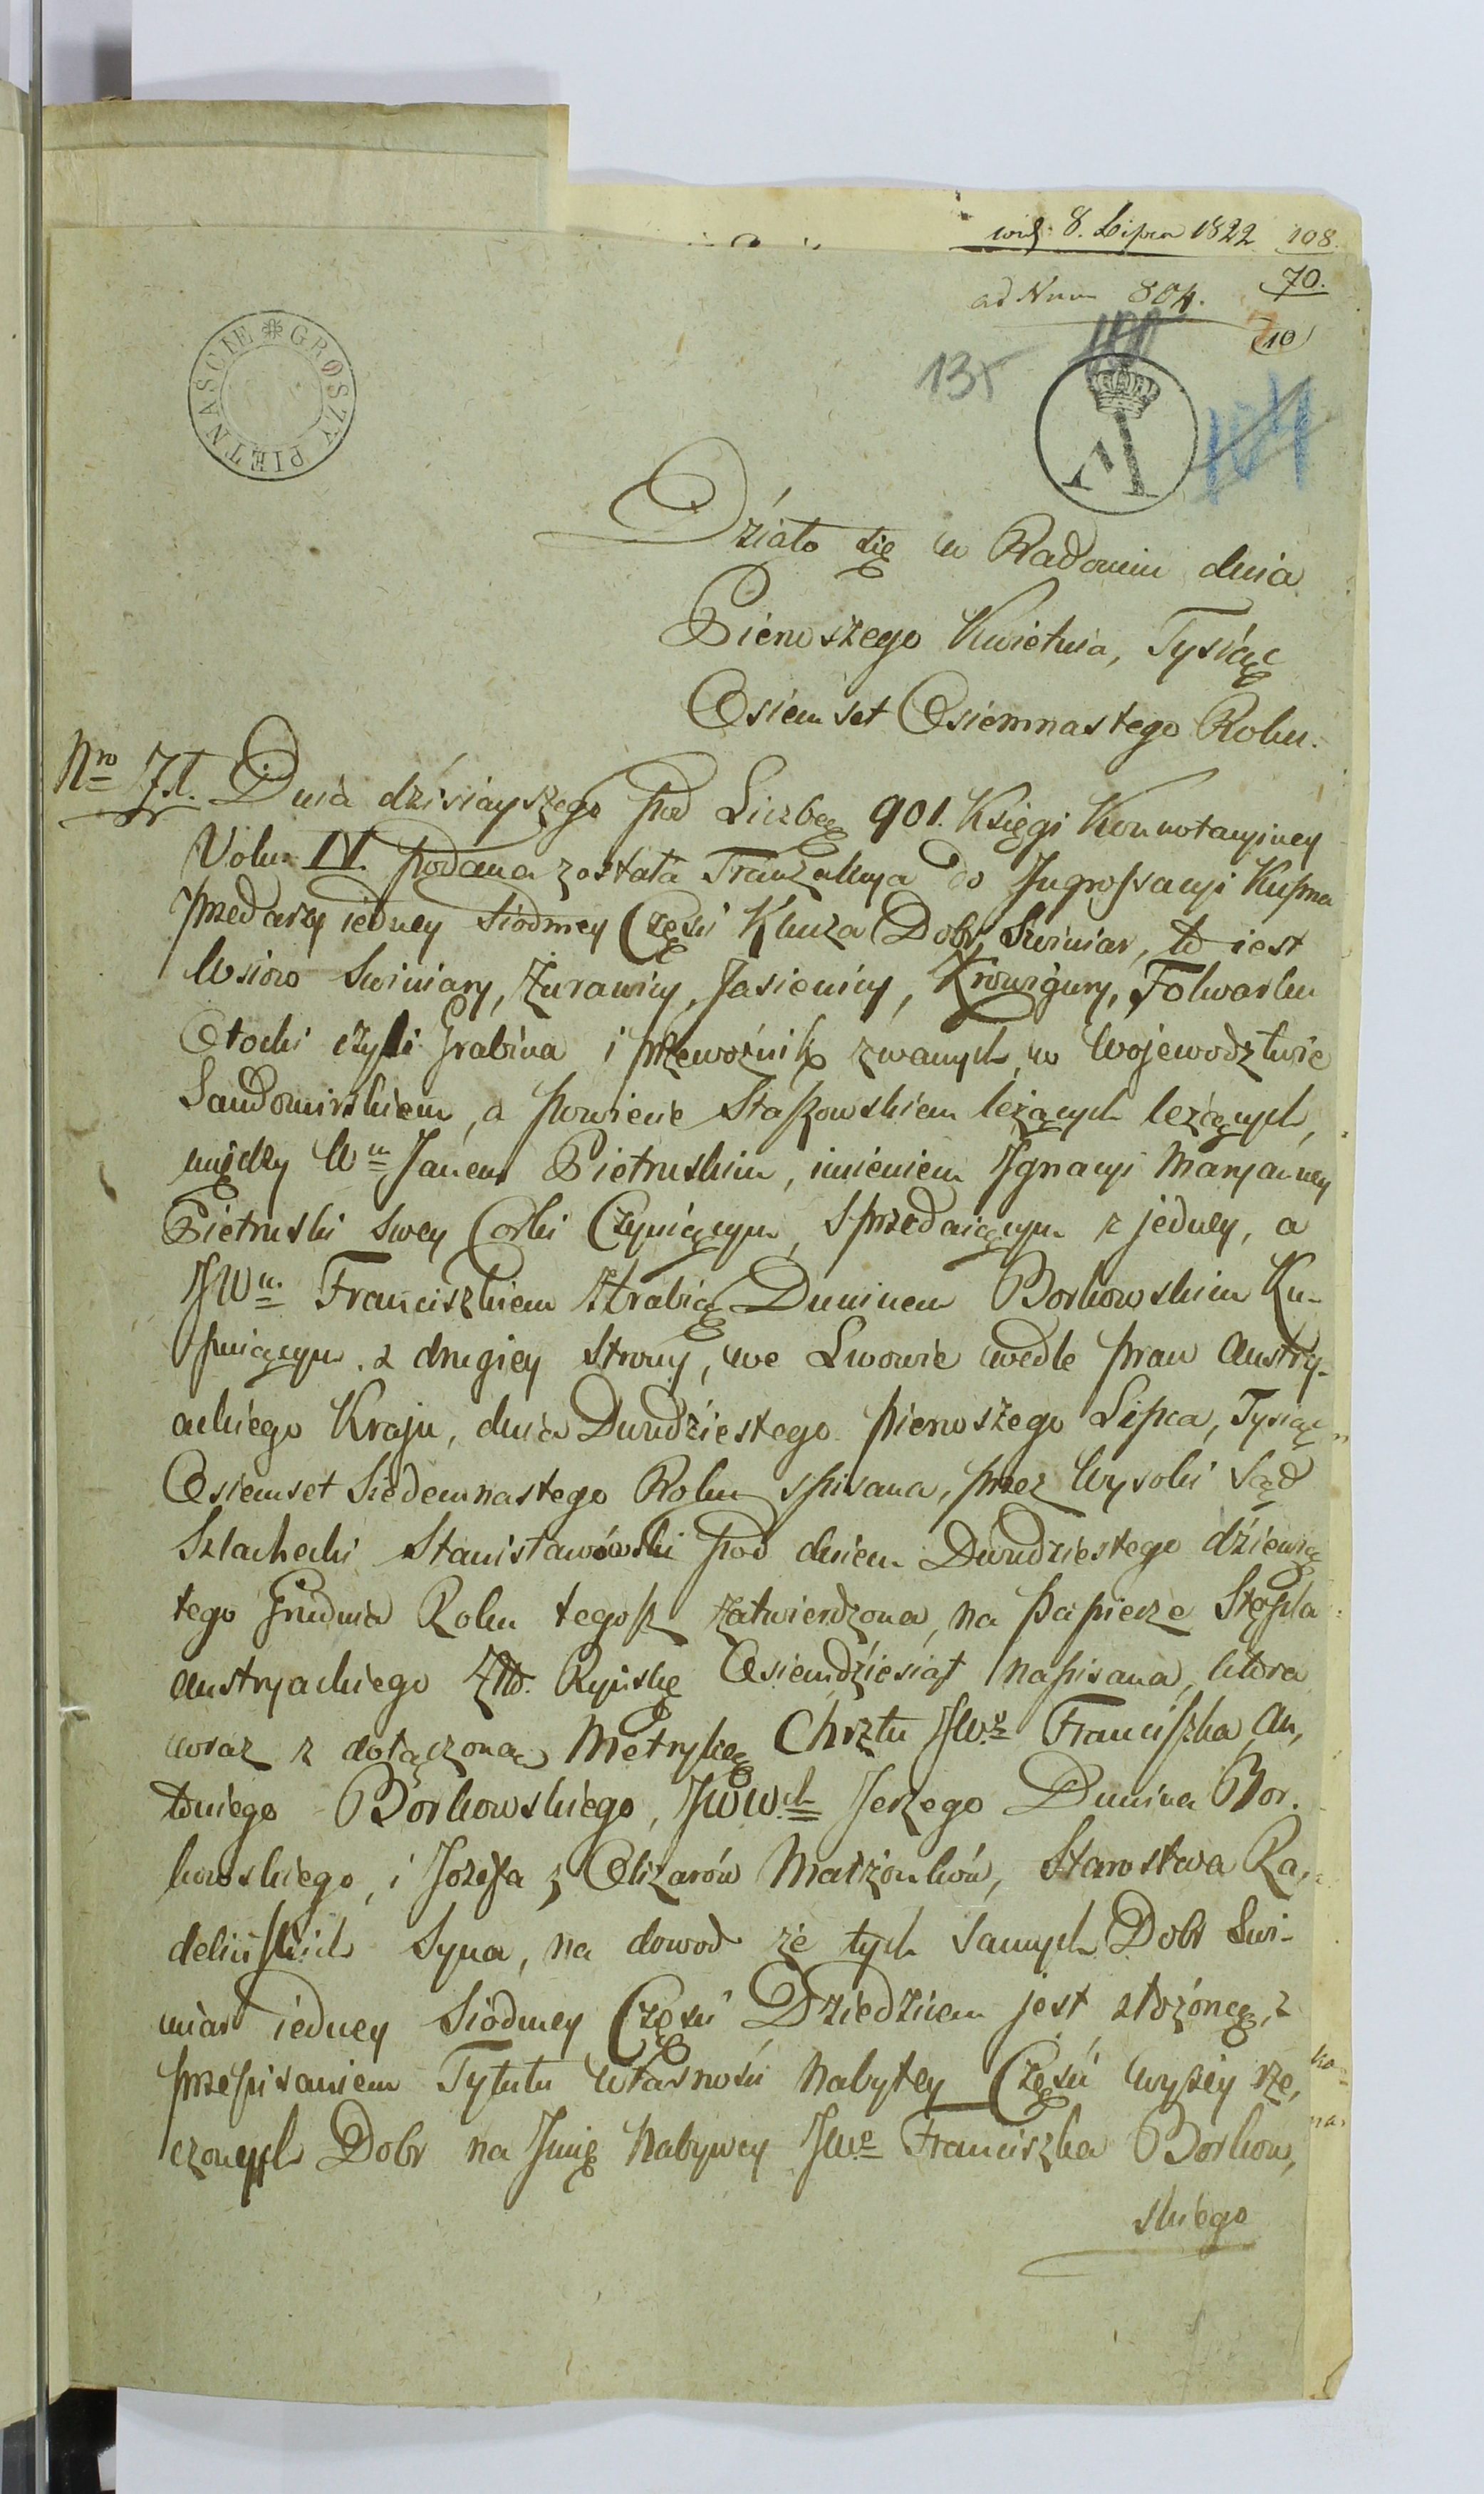 8. Lipca 1822 108.
ad Num 804. 70.
10
135
104
GROSZY PIĘTNAŚCIE
A
Działo się w Radomiu dnia
Pierwszego Kwietnia, Tysiąc
Osiemset Osiemnastego Roku.
Nro 71. Dnia dzisiayszego pod Liczbą 901. Księgi Konnotacyiney
Volu: IV. podana została Tranzakcya do Ingrossacyi Kupna
przedarzy iedney siodmey Częsci Klucza Dobr Swiniar, to iest
Wsiow Swiniary, Zurawicy, Jasienicy, Krowigury, Folwarku
Otocki czyli Grabina i przewoźnik zwanych, w Wojewodztwie
Sandomirskiem, a powiecie Staszowskiem leżących leżących,
między Wm Janem Pietruskim, imieniem Ignacyi Maryanney
Pietruski swey Corki Czyniącym, Sprzedaiącym z jedney, a
JWm Franciszkiem Hrabią Duninem Borkowskim Ku-
puiącym z drugiey strony, we Lwowie wedle praw Austry-
ackiego Kraju, dnia Dwudziestego pierwszego Lipca, Tysiąc
Osiemset Siedemnastego Roku spisana, przez Wysoki Sąd
Szlachecki Stanisławówski pod dniem Dwudziestego dziewią
tego Grudnia Roku tegosz zatwierdzona, na papierze Stępla
Austryackiego Złt. Ryńskę Osiemdziesiąt napisana, ktora
wraz z dołączoną Metryką Chrztu JWo Franciszka An,
toniego Borkowskiego, JWWch Jerzego Dunina Bor.
kowskiego, i Jozefa z Olizarów Małżonków, Starostwa Ra,
delińskich Syna, na dowod że tych samych Dobr Swi-
niar iedney Siodmey Częsci Dziedzicem jest złożoną, z
przepisaniem Tytułu Własnosci Nabytey Częsci wyżey rze,
czonych Dobr na Jmię Nabywcy JWo Franciszka Borkow,
skiego